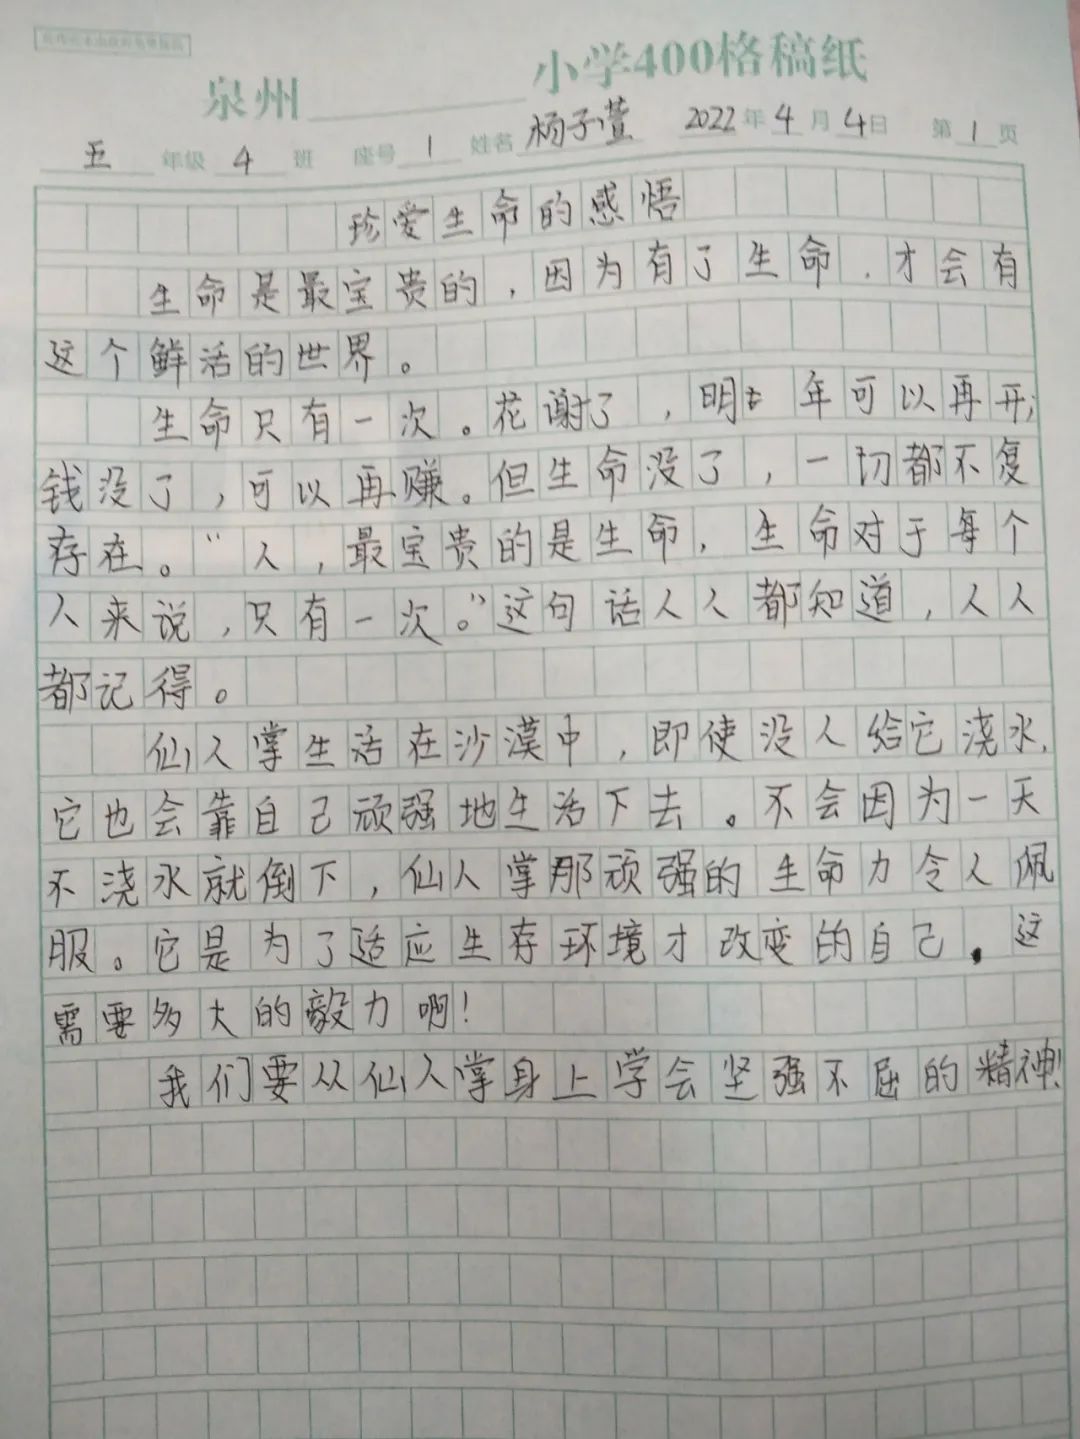 泉州 小学400格稿纸
五年级 4班 座号 1 姓名 杨子萱 2022年4月4日 第1页
珍爱生命的感悟
生命是最宝贵的，因为有了生命，才会有
这个鲜活的世界。
生命只有一次。花谢了，明年可以再开；
钱没了，可以再赚。但生命没了，一切都不复
存在。“人，最宝贵的是生命，生命对于每个
人来说，只有一次。”这句话人人都知道，人人
都记得。
仙人掌生活在沙漠中，即使没人给它浇水，
它也会靠自己顽强地生活下去。不会因为一天
不浇水就倒下，仙人掌那顽强的生命力令人佩
服。它是为了适应生存环境才改变的自己。这
需要多大的毅力啊！
我们要从仙人掌身上学会坚强不屈的精神！